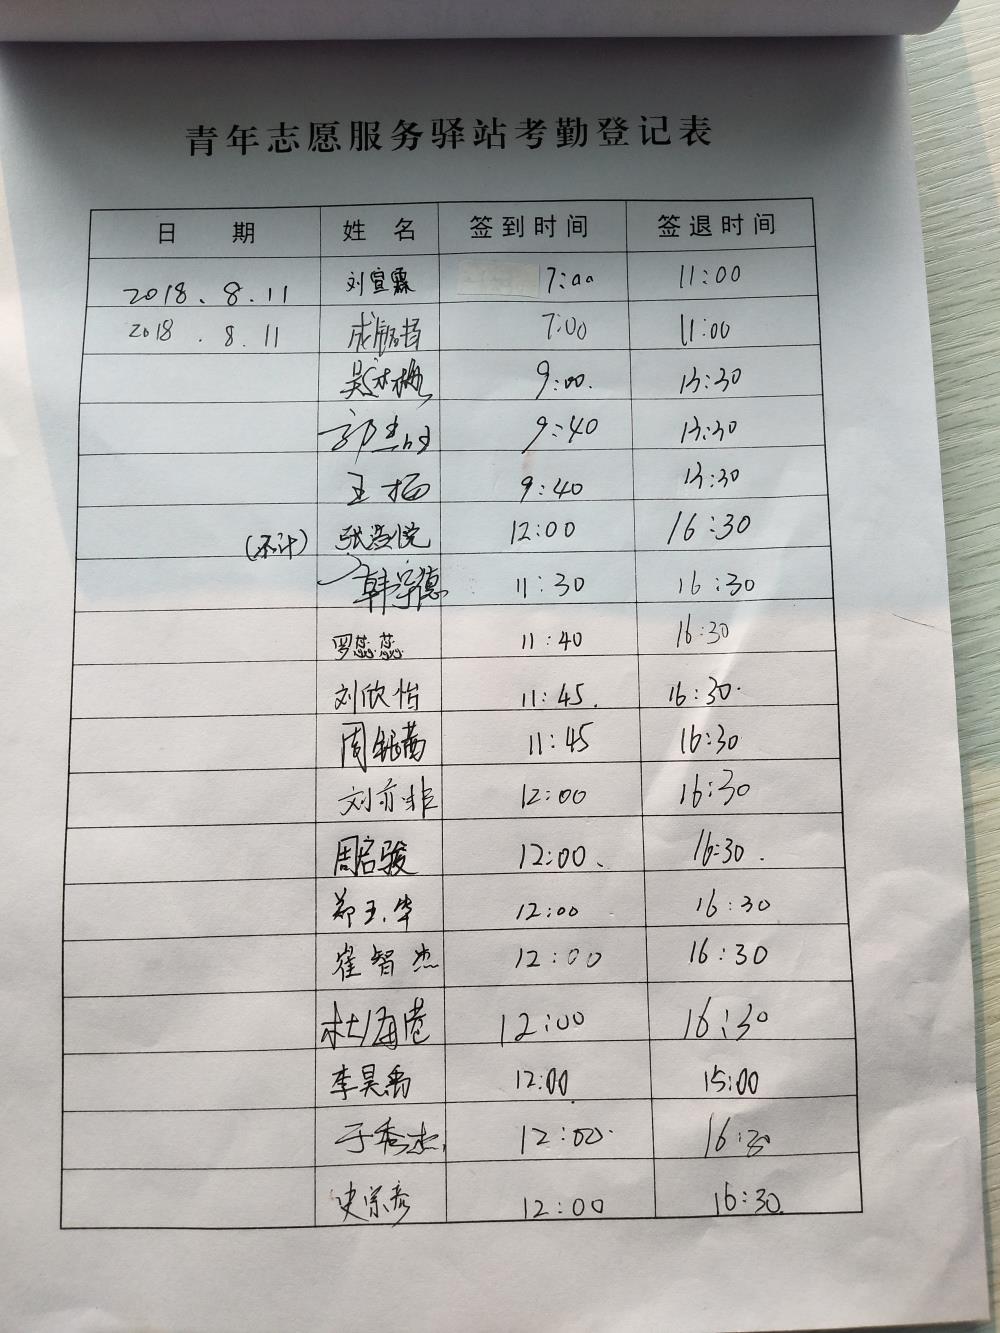 青年志愿服务驿站考勤登记表
日 期 姓 名 签到时间 签退时间
2018.8.11 刘宣霖 7:00 11:00
2018.8.11 7:00 11:00
9:00. 13:30
9:40 13:30
王 9:40 13:30
(不计) 张浩悦 12:00 16:30
韩学德 11:30 16:30
罗蕊蕊 11:40 16:30
刘欣怡 11:45. 16:30.
周钰茜 11:45 16:30
刘亦非 12:00 16:30
周启骏 12:00. 16:30.
郑玉华 12:00 16:30
崔智杰 12:00 16:30
杜海港 12:00 16:30
李昊禹 12:00 15:00
于秀杰 12:00. 16:30
史宗彦 12:00 16:30.